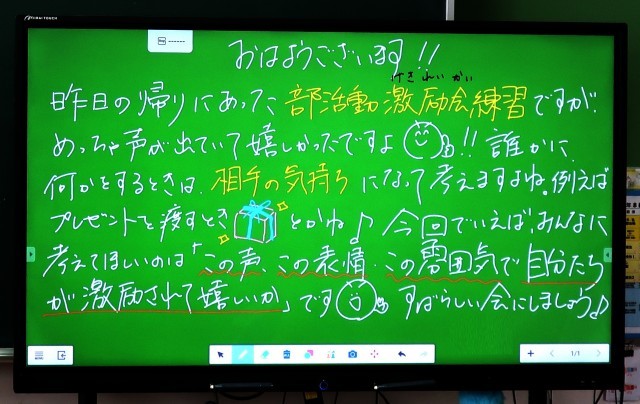 おはようございます!!
げきれいかい
昨日の帰りにあった部活動激励会練習ですが、
めっちゃ声が出ていて嬉しかったですよ!! 誰かに
何かをするときは、相手の気持ちになって考えますよね。例えば
プレゼントを渡すときとかね♪ 今回でいえば、みんなに
考えてほしいのは「この声、この表情、この雰囲気で自分たち
が激励されて嬉しいか」です すばらしい会にしましょう♪
1/1